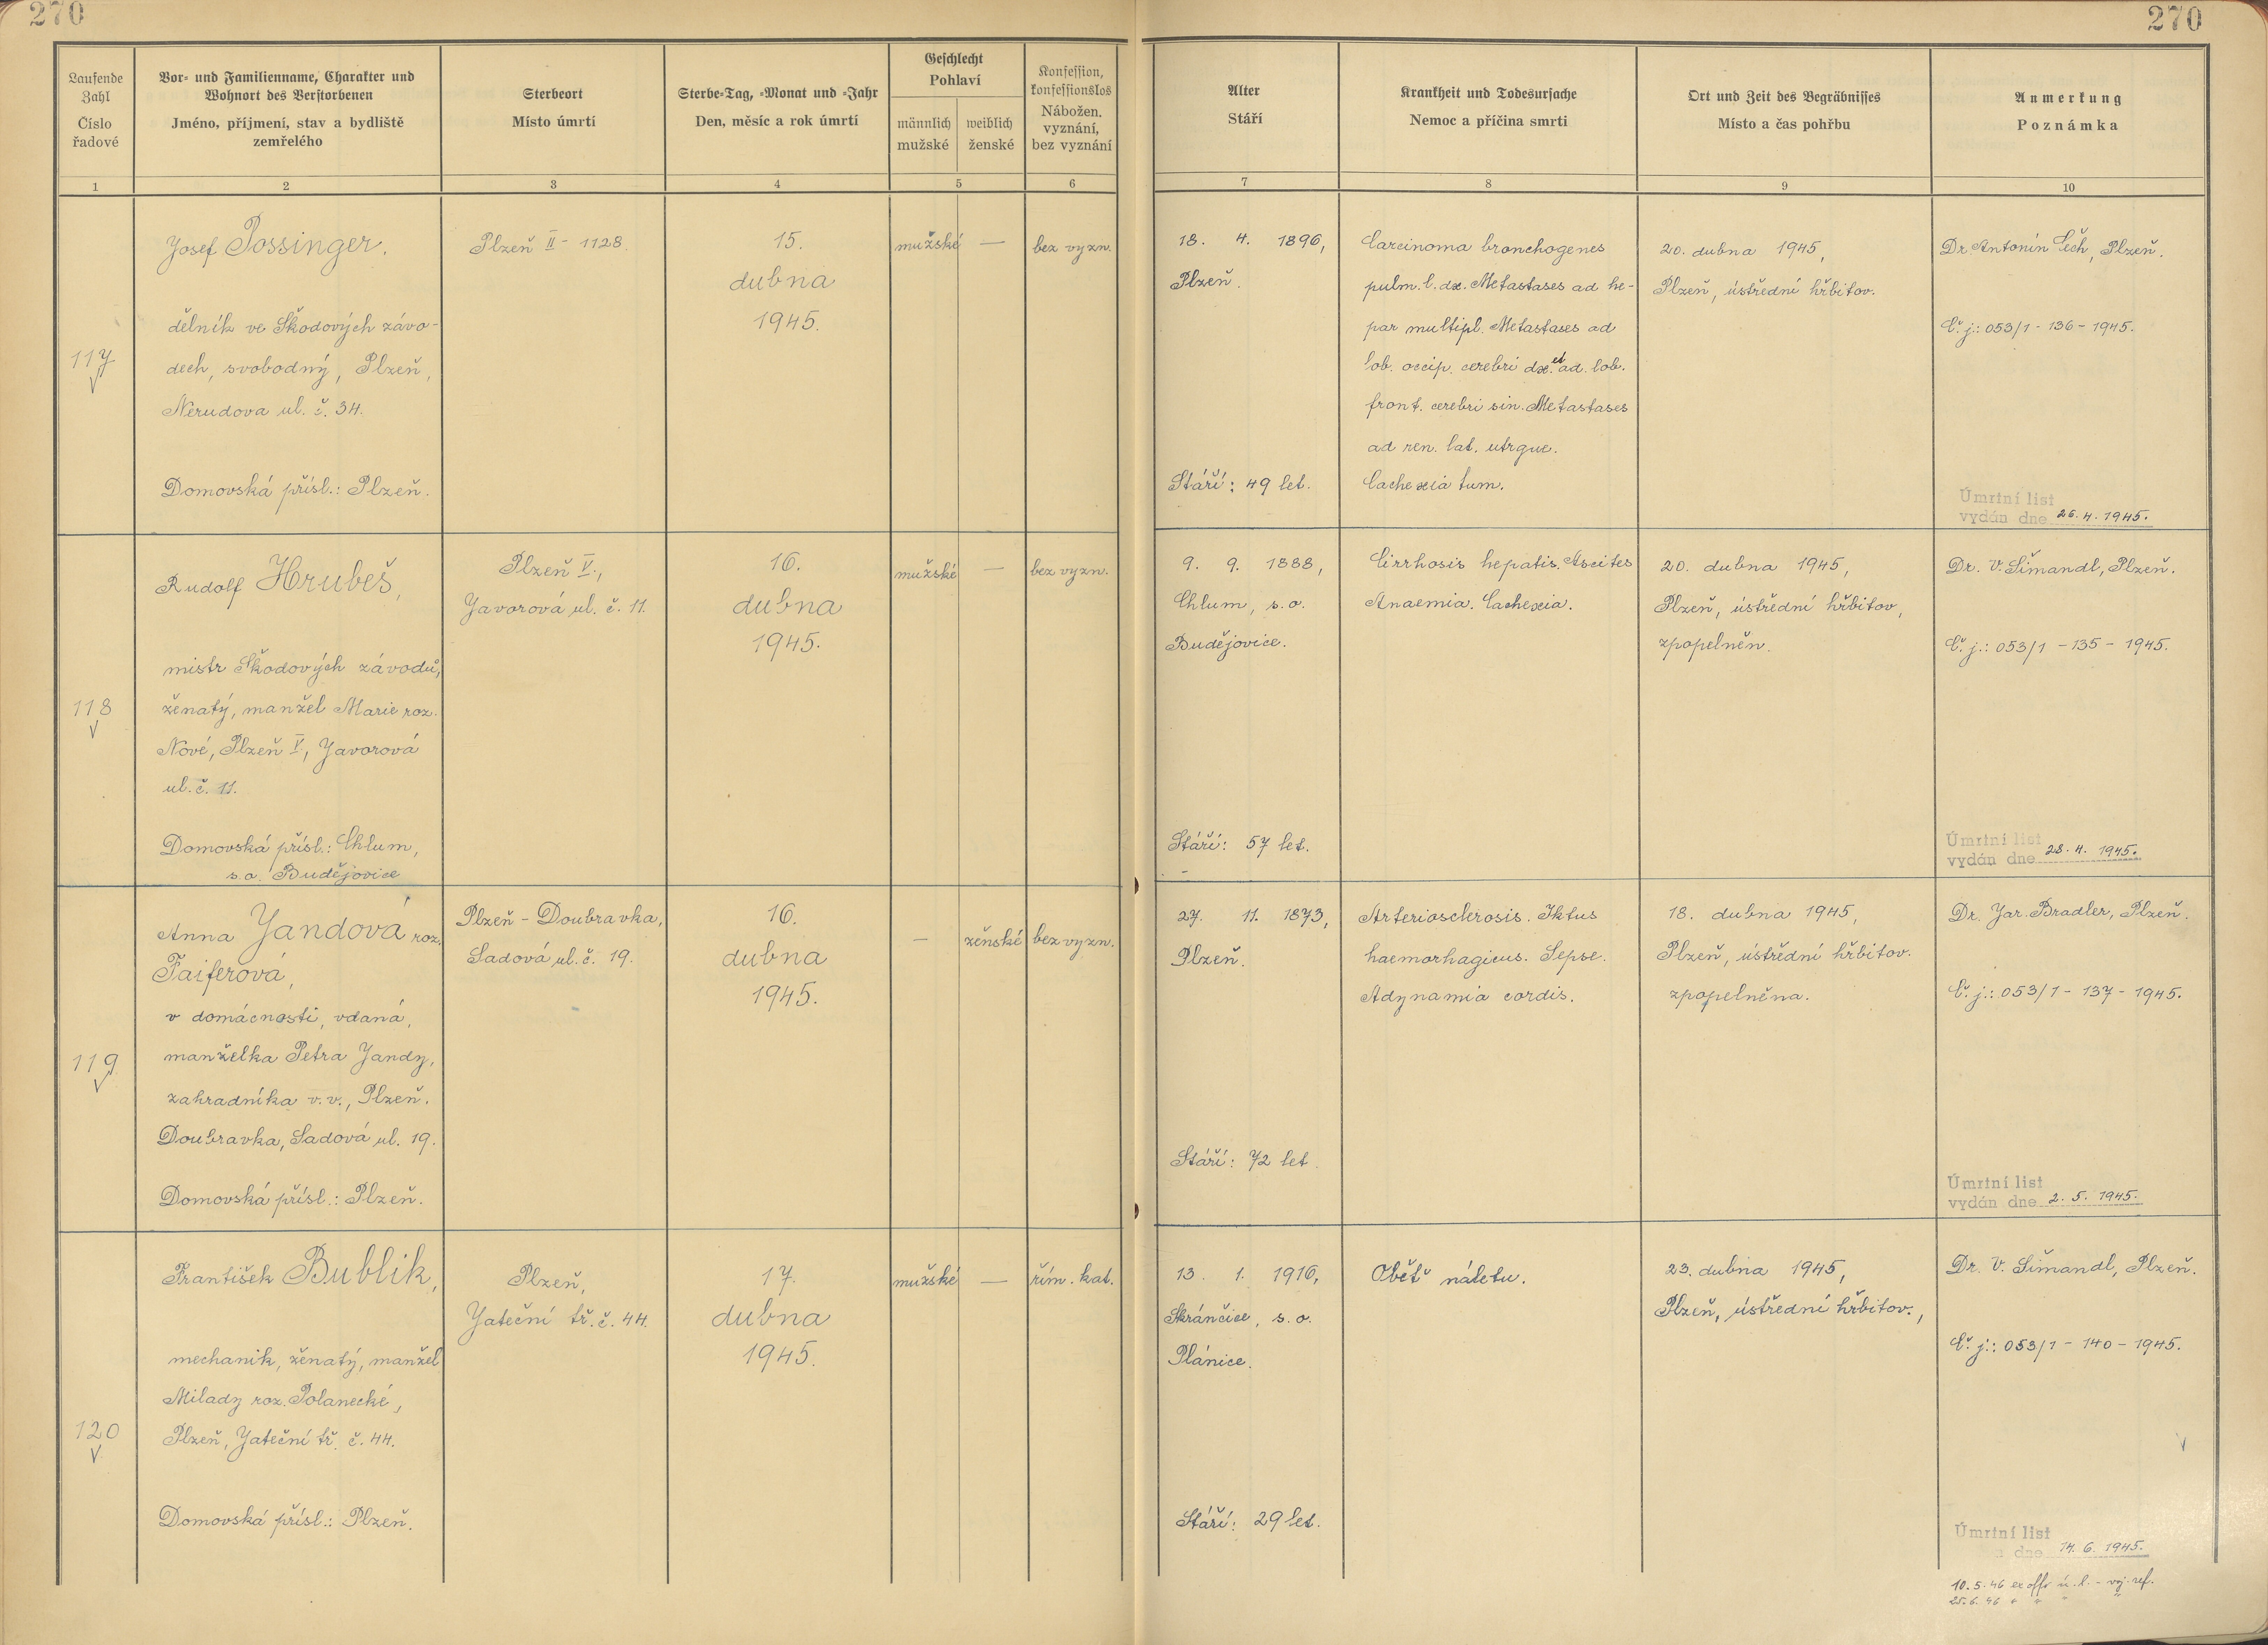 270
270
Laufende Zahl
Číslo řadové
Vor- und Familienname, Charakter und
Wohnort des Verstorbenen
Jméno, příjmení, stav a bydliště
zemřelého
Sterbeort
Místo úmrtí
Sterbe-Tag, -Monat und -Jahr
Den, měsíc a rok úmrtí
Geschlecht
Pohlaví
männlich
mužské
weiblich
ženské
Konfession,
konfessionslos
Nábožen.
vyznání,
bez vyznání
Alter
Stáří
Krankheit und Todesursache
Nemoc a příčina smrti
Ort und Zeit des Begräbnisses
Místo a čas pohřbu
Anmerkung
Poznámka
1
2
3
4
5
6
7
8
9
10
117
Josef Possinger.
dělník ve Škodových závo-
dech, svobodný, Plzeň,
Nerudova ul. č. 34.
Domovská přísl.: Plzeň.
Plzeň II - 1128.
15.
dubna
1945.
mužské
—
bez vyzn.
18. 4. 1896,
Plzeň.
Stáří: 49 let.
Carcinoma bronchogenes
pulm. l. dx. Metastases ad he-
par multipl. Metastases ad
lob. occip. cerebri dx. et ad. lob.
front. cerebri sin. Metastases
ad ren. lat. utrque.
Cachexia tum.
20. dubna 1945,
Plzeň, ústřední hřbitov.
Dr. Antonín Čech, Plzeň.
Č. j.: 053/1 - 136 - 1945.
Úmrtní list
vydán dne 26. 4. 1945.
118
Rudolf Hrubeš,
mistr Škodových závodů,
ženatý, manžel Marie roz.
Nové, Plzeň V, Javorová
ul. č. 11.
Domovská přísl.: Chlum,
s.o. Budějovice
Plzeň V.,
Javorová ul. č. 11.
16.
dubna
1945.
mužské
—
bez vyzn.
9. 9. 1888,
Chlum, s.o.
Budějovice.
Stáří: 57 let.
Cirrhosis hepatis. Ascites
Anaemia. Cachexia.
20. dubna 1945,
Plzeň, ústřední hřbitov,
zpopelněn.
Dr. V. Šimandl, Plzeň.
Č. j.: 053/1 - 135 - 1945.
Úmrtní list
vydán dne 28. 4. 1945.
119
Anna Jandová roz.
Faiferová,
v domácnosti, vdaná,
manželka Petra Jandy,
zahradníka v.v., Plzeň.
Doubravka, Sadová ul. 19.
Domovská přísl.: Plzeň.
Plzeň - Doubravka,
Sadová ul. č. 19.
16.
dubna
1945.
—
ženské
bez vyzn.
27. 11. 1873,
Plzeň.
Stáří: 72 let.
Arteriosclerosis. Iktus
haemorhagicus. Sepse.
Adynamia cordis.
18. dubna 1945,
Plzeň, ústřední hřbitov.
zpopelněna.
Dr. Jar. Bradler, Plzeň.
Č. j.: 053/1 - 137 - 1945.
Úmrtní list
vydán dne 2. 5. 1945.
120
František Bublik,
mechanik, ženatý, manžel
Milady roz. Polanecké,
Plzeň, Jateční tř. č. 44.
Domovská přísl.: Plzeň.
Plzeň,
Jateční tř. č. 44.
17.
dubna
1945.
mužské
—
řím. kat.
13. 1. 1916,
Skránčice, s.o.
Plánice.
Stáří: 29 let.
Oběť náletu.
23. dubna 1945,
Plzeň, ústřední hřbitov.,
Dr. V. Šimandl, Plzeň.
Č. j.: 053/1 - 140 - 1945.
Úmrtní list
dne 14. 6. 1945.
10. 5. 46 ex offo ú. l. - voj. ref.
25. 6. 46 " " " "